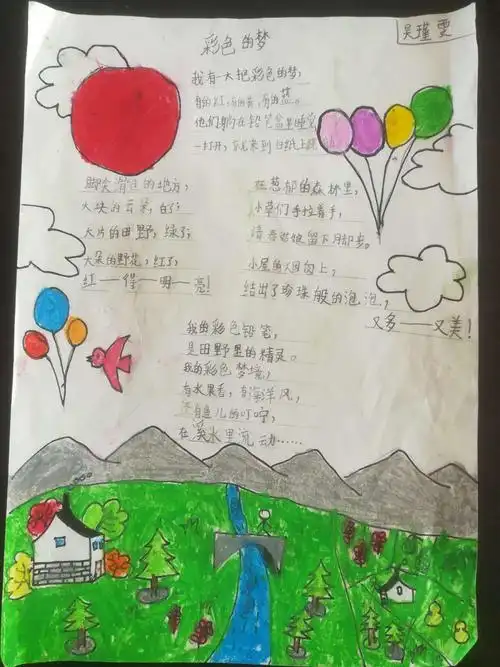 吴瑾雯
彩色的梦
我有一大把彩色的梦,
有的红,有的黄,有的蓝。
他们躺在铅笔盒里睡觉,
一打开,
脚尖滑过的地方,
大块的云朵,白了;
大片的田野,绿了;
大朵的野花,红了;
红——得——明——亮!
在葱郁的森林里,
小草们手拉着手,
请
小屋的烟囱上,
结出了珍珠般的泡泡,
又多——又美!
我的彩色铅笔,
是田野里的精灵。
我的彩色梦境,
有水果香,有海洋风,
鱼儿的叮咛,
在溪水里流动……